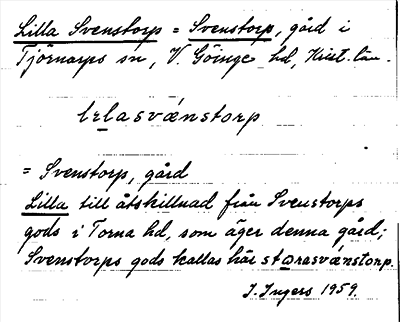 Lilla Svenstorp = Svenstorp, gård i
Tjörnarps sn, V. Göinge hd, Krist. län.
lɩlasvǽnstorp
= Svenstorp, gård
Lilla till åtskillnad från Svenstorps
gods i Torna hd, som äger denna gård;
Svenstorps gods kallas här storasvænstorp.
I. Ingers 1959.